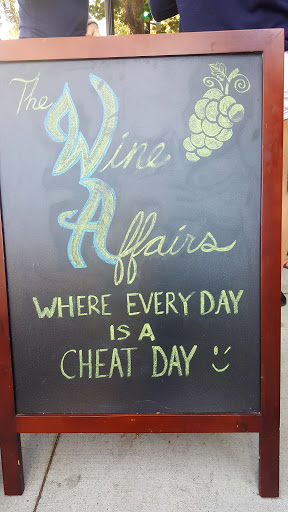 The
Wine
Affairs
WHERE EVERY DAY
IS A
CHEAT DAY